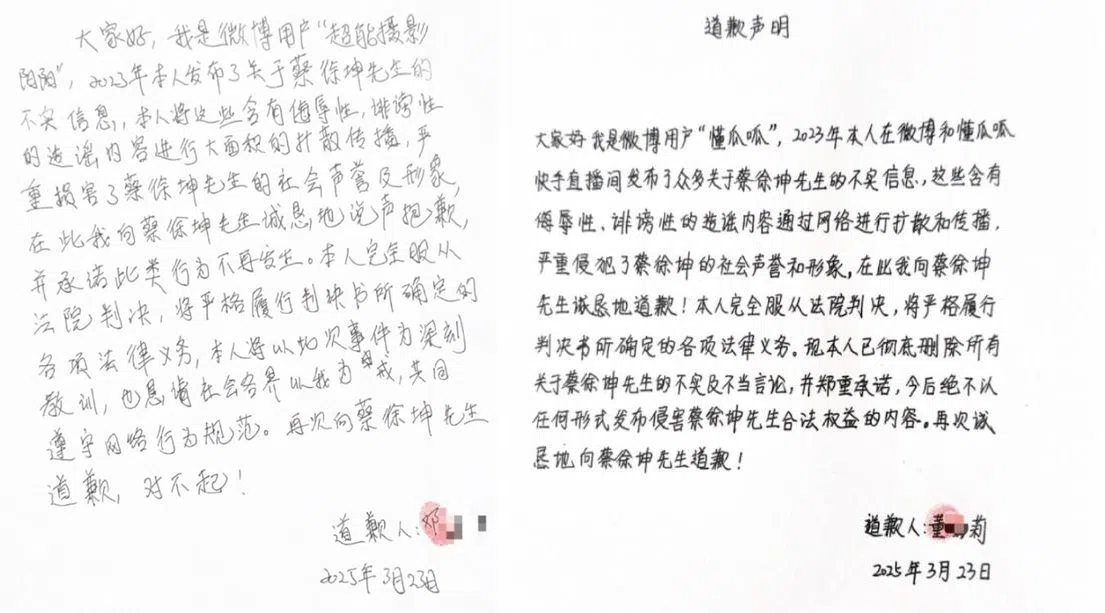 大家好，我是微博用户“超能摄影
阳阳”，2023年本人发布了关于蔡徐坤先生的
不实信息，本人将这些含有侮辱性，诽谤性
的造谣内容进行大面积的扩散传播，严
重损害了蔡徐坤先生的社会声誉及形象，
在此我向蔡徐坤先生诚恳地说声抱歉，
并承诺此类行为不再发生。本人完全服从
法院判决，将严格履行判决书所确定的
各项法律义务，本人将以此次事件为深刻
教训，也恳请社会各界以我为戒，共同
遵守网络行为规范。再次向蔡徐坤先生
道歉，对不起！
道歉人：邓
2025年3月23日
道歉声明
大家好我是微博用户“懂瓜呱”，2023年本人在微博和懂瓜呱
快手直播间发布了众多关于蔡徐坤先生的不实信息，这些含有
侮辱性、诽谤性的造谣内容通过网络进行扩散和传播，
严重侵犯了蔡徐坤的社会声誉和形象，在此我向蔡徐坤
先生诚恳地道歉！本人完全服从法院判决，将严格履行
判决书所确定的各项法律义务。现本人已彻底删除所有
关于蔡徐坤先生的不实及不当言论，并郑重承诺，今后绝不以
任何形式发布侵害蔡徐坤先生合法权益的内容。再次诚
恳地向蔡徐坤先生道歉！
道歉人：董莉
2025年3月23日